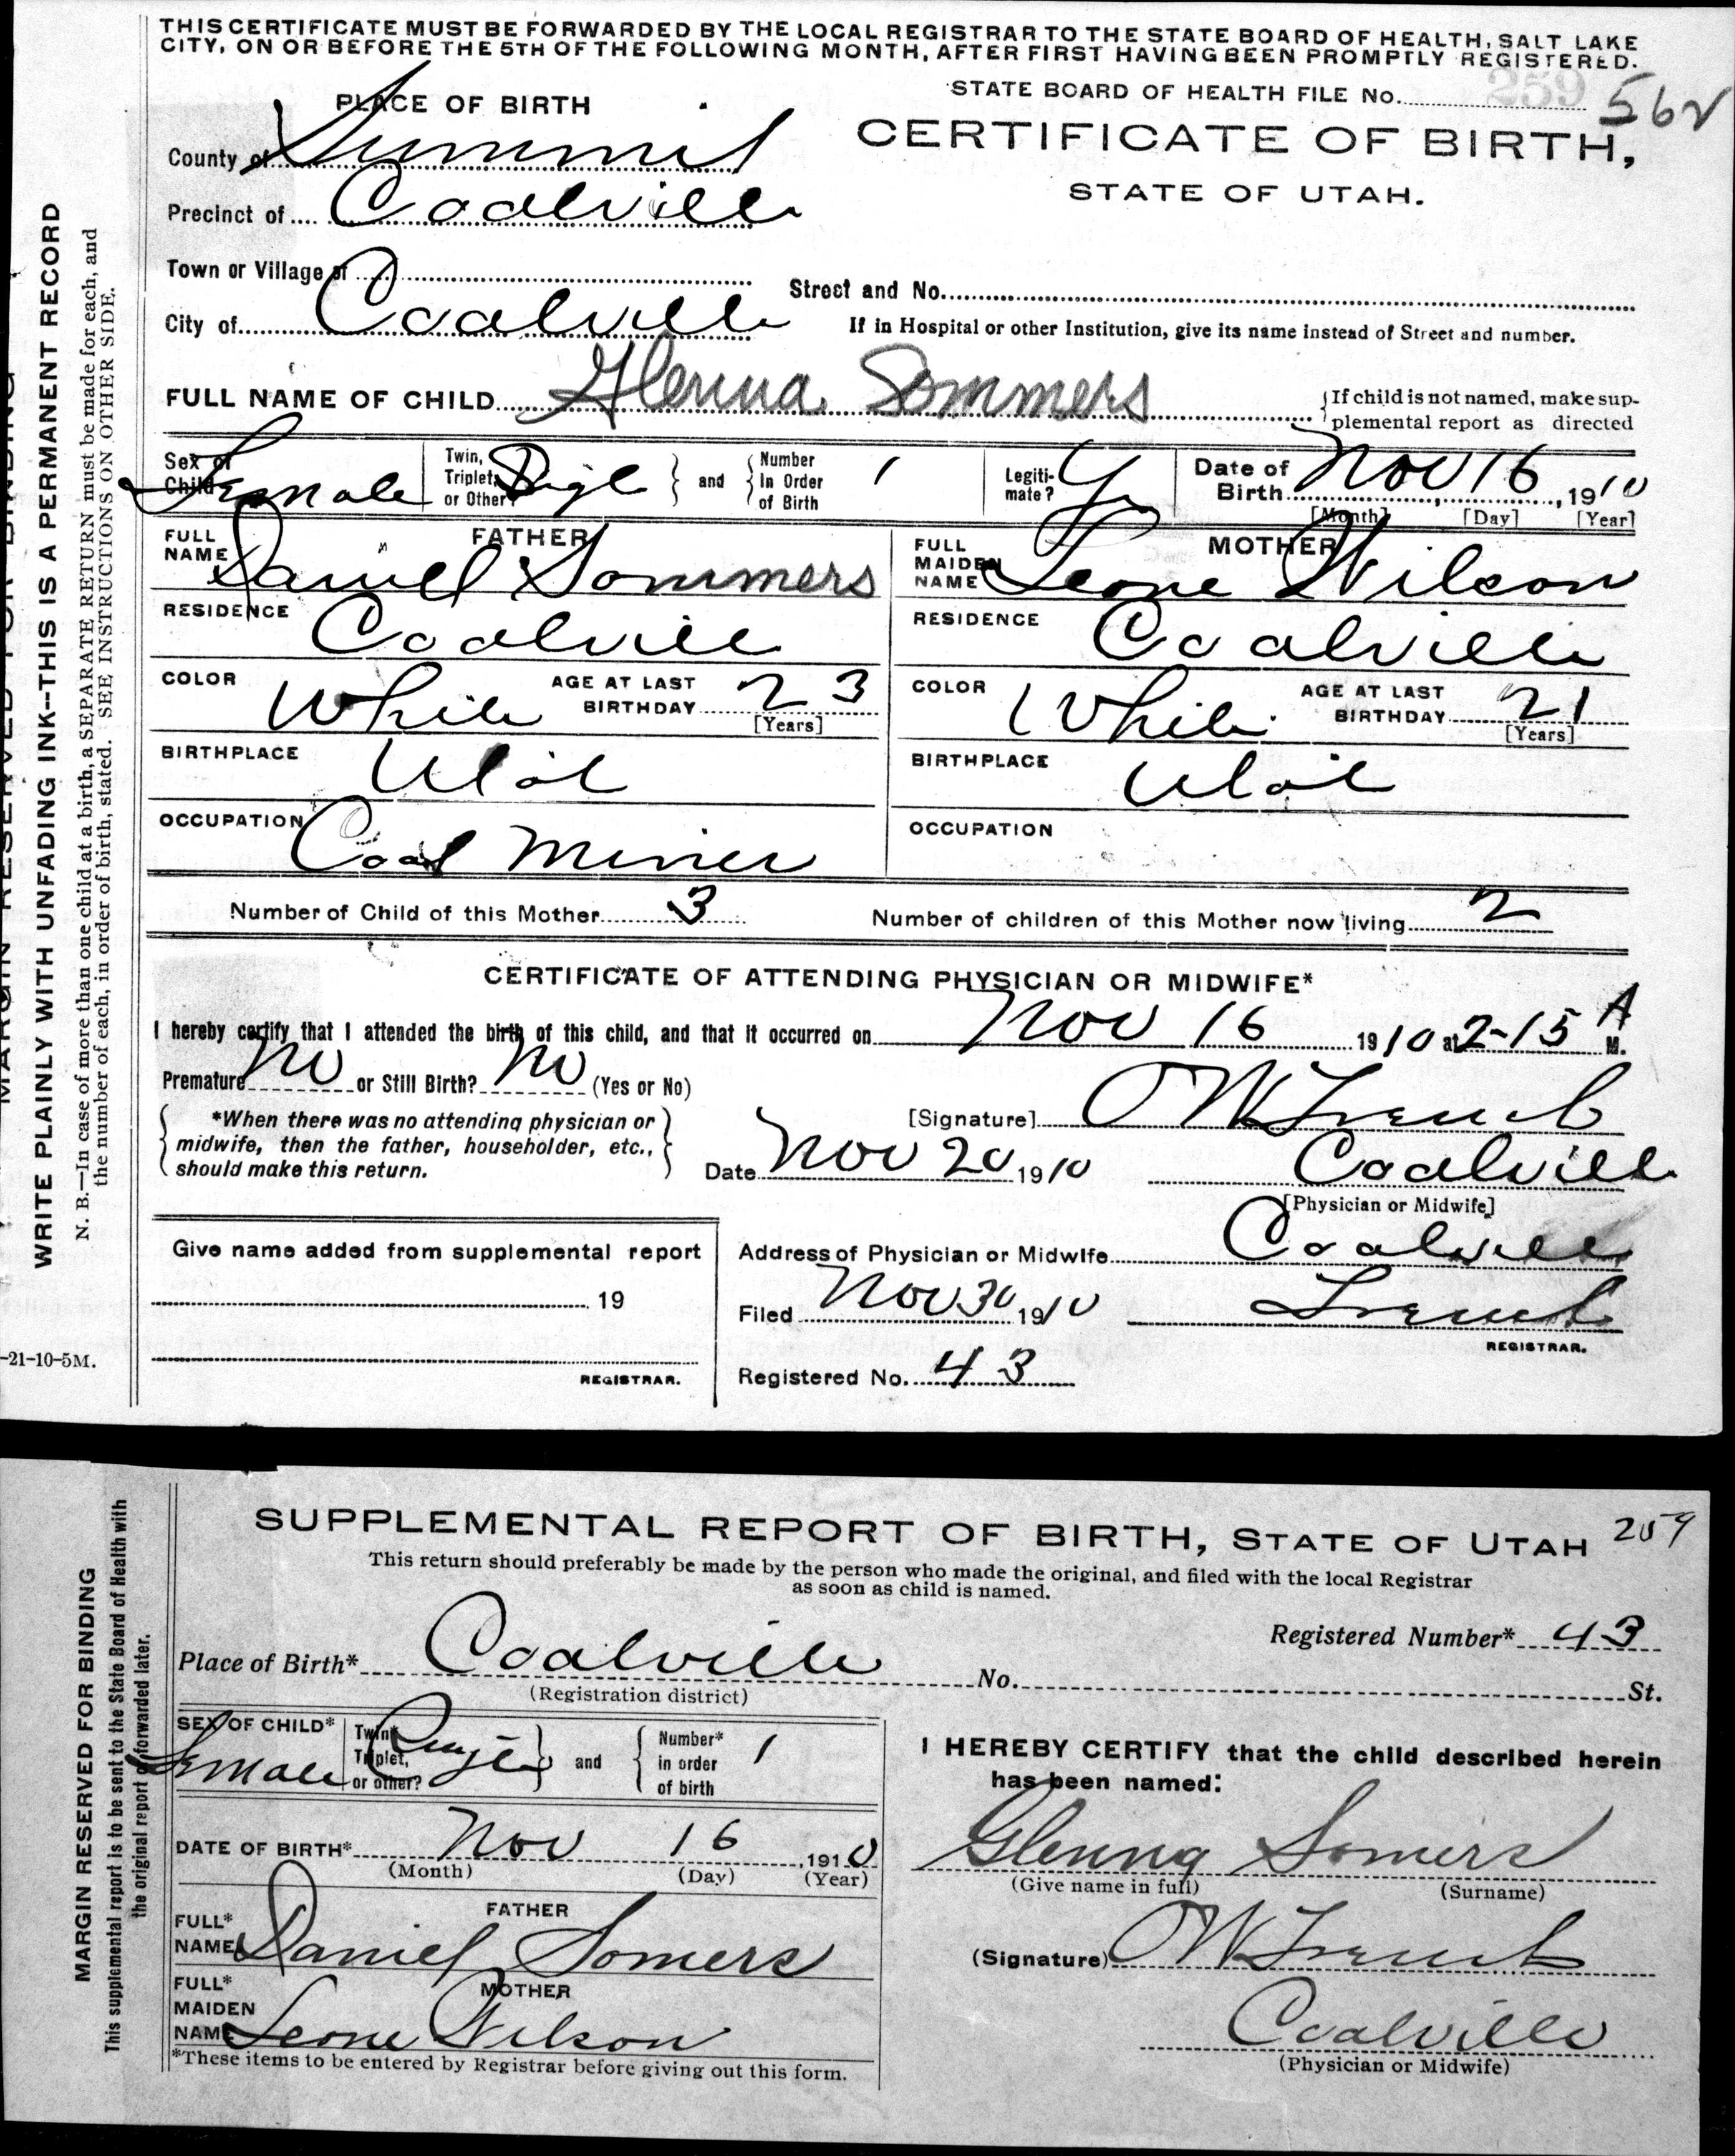 THIS CERTIFICATE MUST BE FORWARDED BY THE LOCAL REGISTRAR TO THE STATE BOARD OF HEALTH, SALT LAKE
CITY, ON OR BEFORE THE 5TH OF THE FOLLOWING MONTH, AFTER FIRST HAVING BEEN PROMPTLY REGISTERED.
STATE BOARD OF HEALTH FILE No. 259 562
PLACE OF BIRTH
CERTIFICATE OF BIRTH,
STATE OF UTAH.
County of Summit
Precinct of Coalville
Town or Village of
Street and No.
City of Coalville
If in Hospital or other Institution, give its name instead of Street and number.
FULL NAME OF CHILD Glenna Sommers
If child is not named, make sup-
plemental report as directed
Sex of Child Female
Twin, Triplet, or Other?
and
Number In Order of Birth 1
Legiti-mate? Y
Date of Birth Nov 16, 1910
[Month] [Day] [Year]
FATHER
FULL NAME Daniel Sommers
MOTHER
FULL MAIDEN NAME Leone Wilson
RESIDENCE Coalville
RESIDENCE Coalville
COLOR White AGE AT LAST BIRTHDAY 23 [Years]
COLOR White AGE AT LAST BIRTHDAY 21 [Years]
BIRTHPLACE Utah
BIRTHPLACE Utah
OCCUPATION Coal Miner
OCCUPATION
Number of Child of this Mother 3
Number of children of this Mother now living 2
CERTIFICATE OF ATTENDING PHYSICIAN OR MIDWIFE*
I hereby certify that I attended the birth of this child, and that it occurred on Nov 16 1910 at 2-15 A M.
Premature No or Still Birth? No (Yes or No)
*When there was no attending physician or
midwife, then the father, householder, etc.,
should make this return.
[Signature]
Date Nov 20 1910
Coalville
[Physician or Midwife]
Give name added from supplemental report
19
REGISTRAR.
Address of Physician or Midwife Coalville
Filed Nov 30 1910
REGISTRAR.
Registered No. 43
-21-10-5M.
MARGIN RESERVED FOR BINDING
WRITE PLAINLY WITH UNFADING INK--THIS IS A PERMANENT RECORD
N. B.—In case of more than one child at a birth, a SEPARATE RETURN must be made for each, and
the number of each, in order of birth, stated. SEE INSTRUCTIONS ON OTHER SIDE.
SUPPLEMENTAL REPORT OF BIRTH, STATE OF UTAH 259
This return should preferably be made by the person who made the original, and filed with the local Registrar
as soon as child is named.
Registered Number* 43
Place of Birth* Coalville No. St.
(Registration district)
SEX OF CHILD* Female
Twin, Triplet, or other?
and
Number* in order of birth 1
I HEREBY CERTIFY that the child described herein
has been named:
DATE OF BIRTH* Nov 16, 1910
(Month) (Day) (Year)
Glenna Somers
(Give name in full) (Surname)
FATHER
FULL* NAME Daniel Somers
(Signature)
MOTHER
FULL* MAIDEN NAME Leone Wilson
Coalville
(Physician or Midwife)
*These items to be entered by Registrar before giving out this form.
MARGIN RESERVED FOR BINDING
This supplemental report is to be sent to the State Board of Health with
the original report or forwarded later.